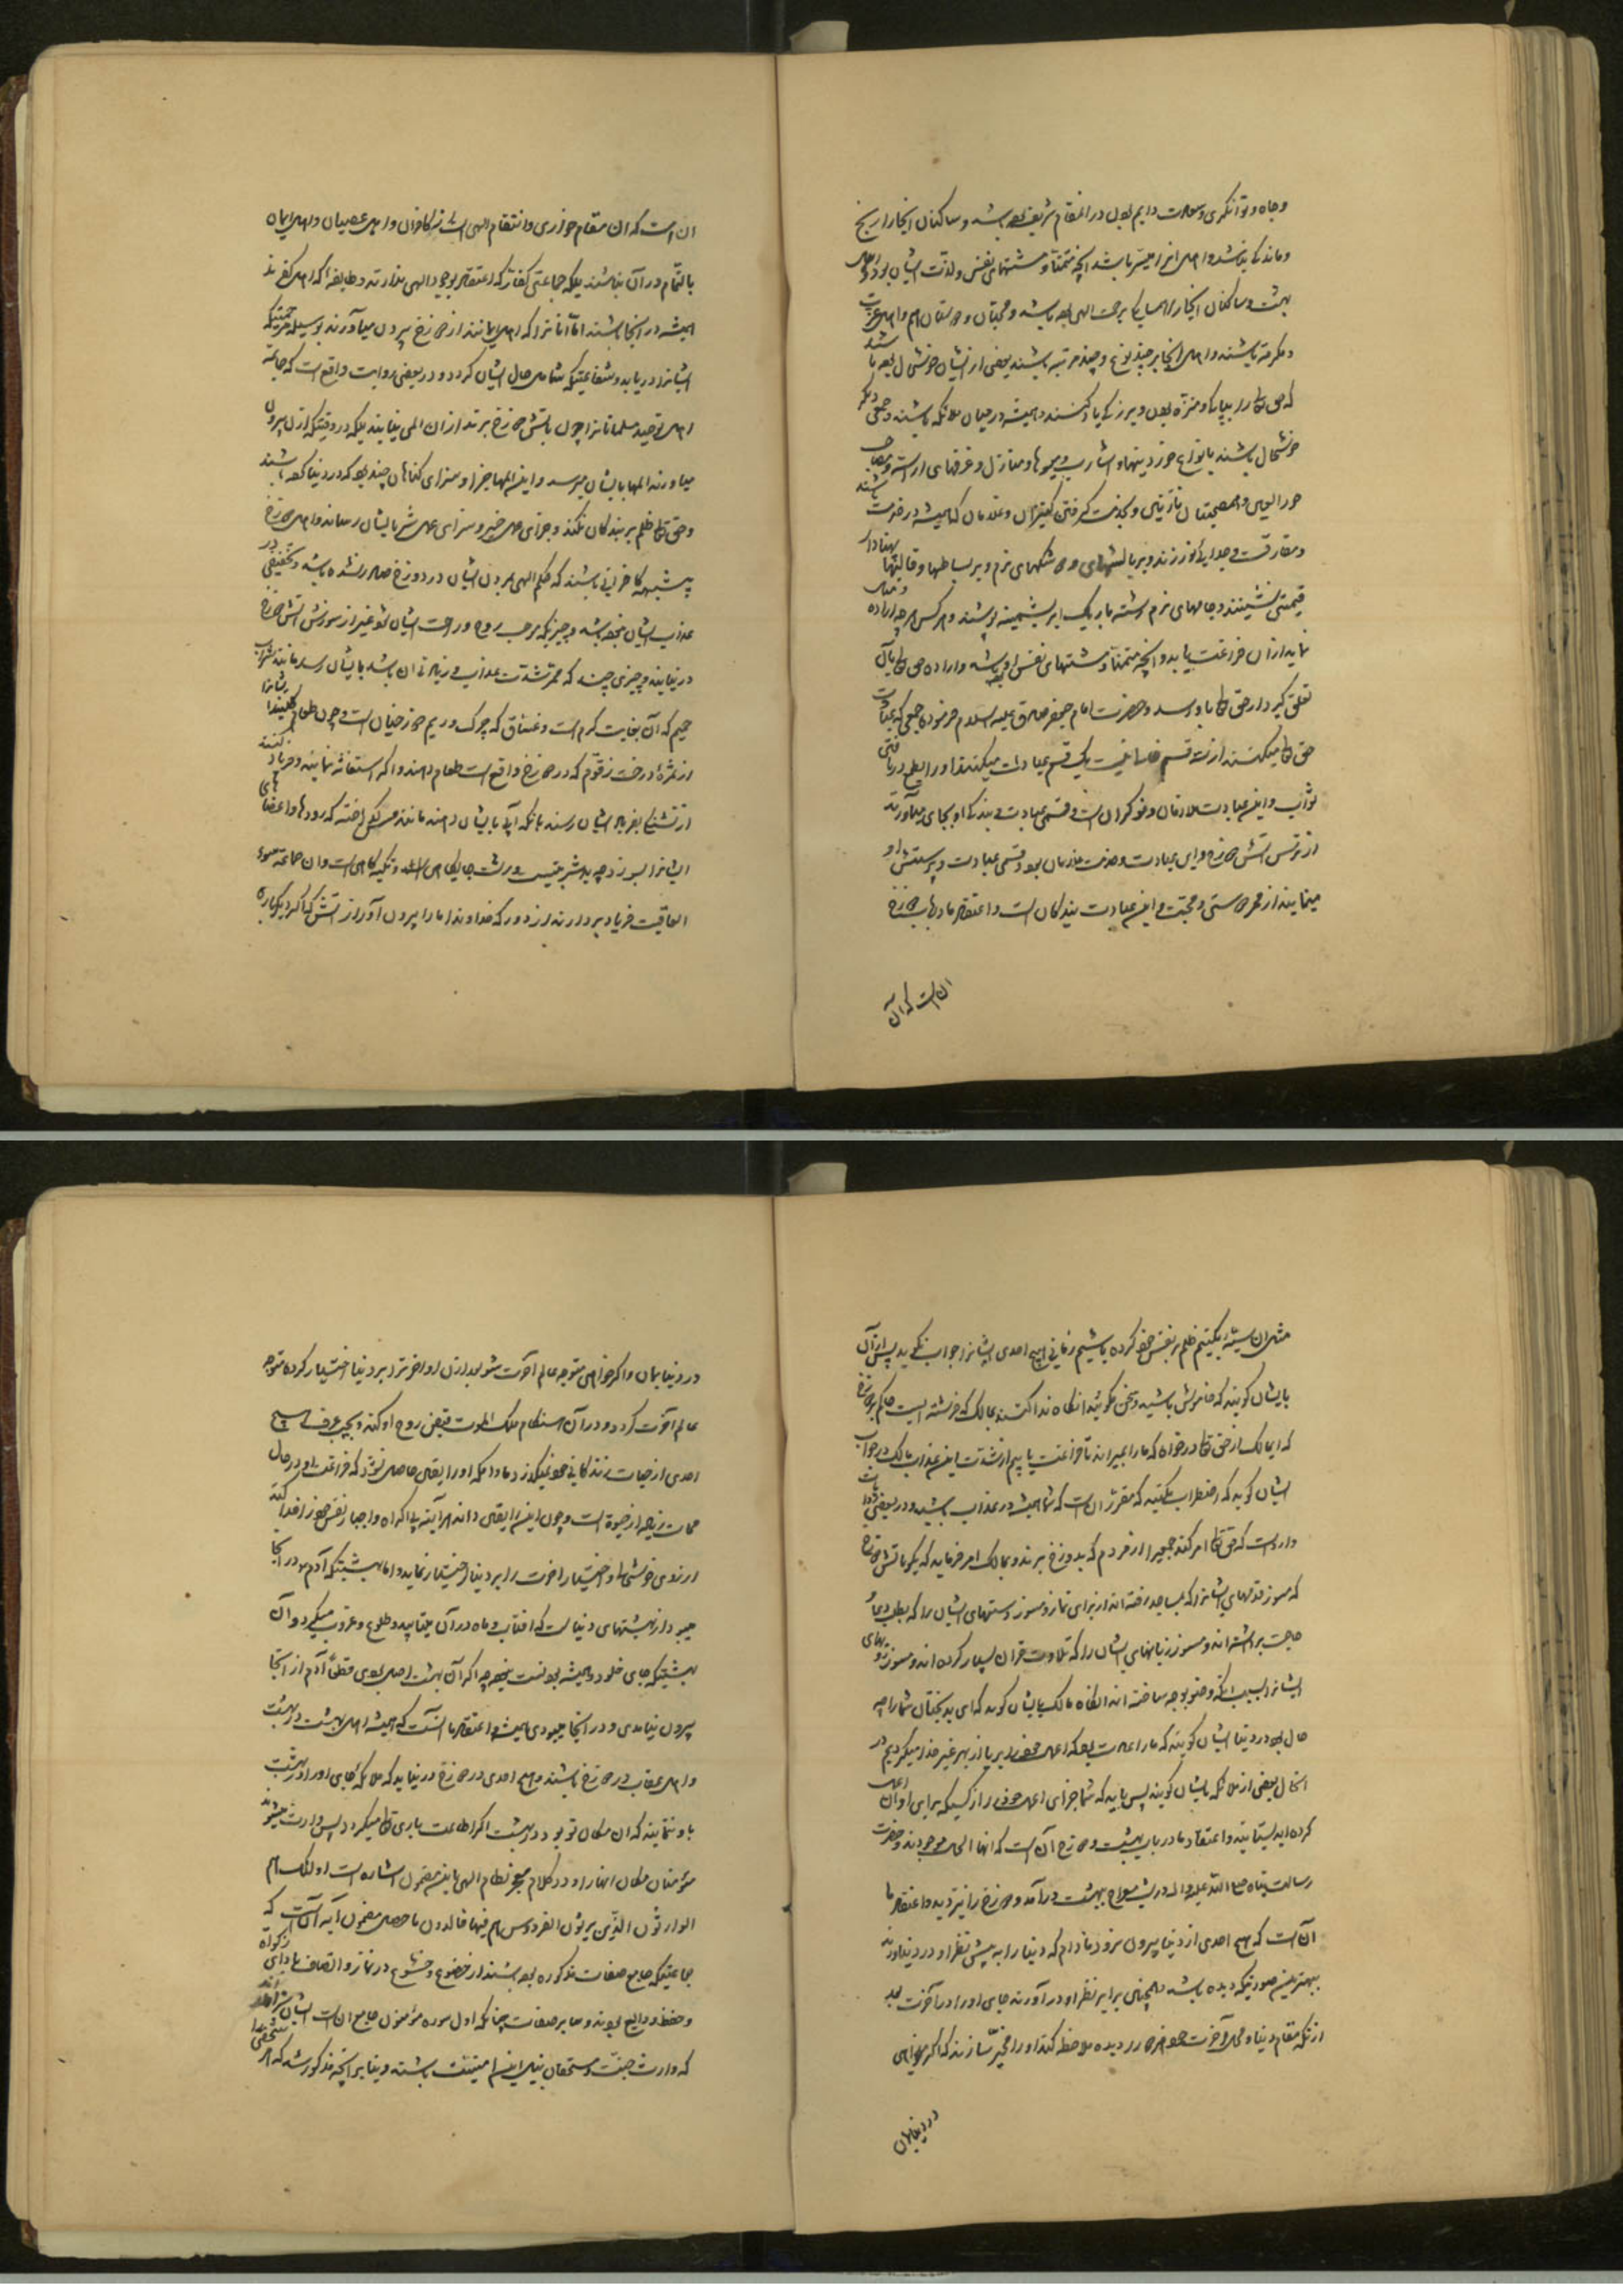 وجاه و توانگری و سعادت دایم بود در المقام شریف بوده باشد و ساکنان انجا را رنج
و ماندگی نباشد و اهل انرا میسّر باشد انچه متمنّا و مشتهای نفس و لذت ایشان بود و اهل
بهشت و ساکنان انجا را همسایگی رحمت الهی بوده باشد و محبّان و دوستان هم و اهل عزت
و مکرمة باشند و اهل انجا بر چند نوع و چند مرتبه باشند بعضی از ایشان خوشحال بوده باشند
که حق تعالی را بپاکی و منزّه بودن و بزرگی یاد کنند و همیشه در میان ملائکه باشند و جمعی دیگر
خوشحال باشند بانواع خوردنیها و اشارب و میوها و منازل و غرفهای اراسته و مصاحب
حور العین و همصحبتان نازنین و بخدمت گرفتن کنیزان و غلامان که همیشه در خدمت باشند
و مفارقت و جدایی نورزند و بر بالشهای و متکهای نرم و بر بساطها و قالیها بهنا دار
قیمتی نشینند و جامهای نرم رشته باریک ابریشمینه پوشند و هر کس هر چه اراده
نماید ازان فراغت یابد و انچه متمنّا و مشتهای نفس او بوده باشد و اراده حق تعالی بآن
تعلق گیرد از حق تعالی باو رسد و حضرت امام جعفر صادق علیه السلام فرموده جمعی که عبادت
حق تعالی میکنند از سه قسم خالی نیست یک قسم عبادت میکنند او را بطمع دریافتن
ثواب و این عبادت ملازمان و نوکران است و قسمی عبادت و بندگی او بجای میآورند
از ترس آتش دوزخ و این عبادت و خدمت ملازمان بود و قسمی عبادت و پرستش او
مینمایند از محض دوستی و محبّت و این عبادت بندگان است و اعتقاد ما در باب دوزخ
ان است که آن
ان است که ان مقام خواری و انتقام الهی است از کافران و اهل عصیان و اهل ایمان
بالتّمام در آن نباشند بلکه جماعتی کفار که اعتقاد بوجود الهی ندارند و طایفه که اهل کفرند
همیشه در انجا باشند امّا آنانرا که اهل ایمانند از دوزخ بیرون میآورند بوسیله رحمتیکه
ایشانرا دریابد و شفاعتیکه شامل حال ایشان گردد و در بعضی روایت واقع است که جماعة
اهل توحید مسلمانانرا چون بآتش دوزخ برند از ان المی نیابند بلکه در وقتیکه از ان بیرون
میاورند المها بایشان میرسد و این المها جزا و سزای گناهان چند بود که در دنیا کرده باشند
و حق تعالی ظلم بر بندگان نکند و جزای عمل خیر و سزای عمل شر بایشان رساند و اهل دوزخ
همیشه کافرانی باشند که حکم الهی بمردن ایشان در دوزخ صادر نشده باشد و تخفیفی در
عذاب ایشان نبوده باشد و چیزیکه موجب روح و راحت ایشان شود غیر از سوزش آتش دوزخ
در نیابند و چیزی چند که مثمر شدّت عذاب و زیادتی ان باشد بایشان رسد مانند شراب
حمیم که آن بغایت گرم است و غسّاق که چرک و ریم دوزخیان است و چون طعام طلبند ایشانرا
از ثمرهٔ درخت زقّوم که در دوزخ واقع است طعام دهند و اگر استغاثه نمایند و فریاد کنند
از تشنگی بفریاد ایشان رسند بانکه آبی بایشان دهند مانند مس گداخته که رودها و اعضاهای
ایشانرا بسوزد چه بد شربتیست و زشت جایگاهی است و تکیه گاهی است و ان جماعة سوء
العاقبت فریاد بردارند از دور که خداوندا ما را بیرون آور از آتش که اگر دیگر باره
مثل ان سیّئه بکنیم ظلم بر نفس خود کرده باشیم زمانی هیچ احدی ایشانرا جواب نگوید پس ازآن
بایشان گویند که خاموش باشید و سخن مگوئید انگاه ندا کنند بمالک که فرشته ایست حاکم بر دوزخ
که ای مالک از حق تعالی درخواه که ما را بمیراند تا فراغت یابیم از شدت این عذاب مالک در جواب
ایشان گوید که اضطراب مکنید که مقرّر ان است که شما همیشه در عذاب باشید و در بعضی روایات
وارد است که حق تعالی امر کند جمعی را از مردم که بدوزخ برند و بمالک امر فرماید که بگو باتش دوزخ
که مسوز قدمهای ایشانرا که بمساجد رفته اند از برای نماز و مسوز دستهای ایشان را که بطلب دعای
حاجت برداشته اند و مسوز زبانهای ایشان را که تلاوت قران بسیار کرده اند و مسوز رویهای
ایشانرا بسبب انکه وضو بوجه ساخته اند انگاه مالک بایشان گوید که ای بدبختان شما را چه
حال بود در دنیا ایشان گویند که ما را عادت بود که اعمال خود را بریا از بهر غیر خدا میکردیم در
انحال بعضی از ملائکه بایشان گویند پس باید که شما جزای اعمال خود را از کسیکه برای او ان اعمال
کرده اید بستانید و اعتقاد ما در باب بهشت و دوزخ آن است که انها الحال موجودند و حضرت
رسالت پناه صلی اللّه علیه و اله در شب معراج بهشت درآمد و دوزخ را نیز دید و اعتقاد ما
آن است که هیچ احدی از دنیا بیرون نرود مادام که دنیا را به پیش نظر او در نیاورند
ببهترین صورتیکه دیده باشد و همچنین برابر نظر او درآورند جای او را در آخرت بعد
از انکه مقام دنیا و محل آخرت هر دو را دیده ملاحظه کند او را مخیّر سازند که اگر خواهی
در دنیا بمان
در دنیا بمان و اگر خواهی متوجه عالم آخرت شو بعد ازان او اخرت را بر دنیا اختیار کرده متوجه
عالم آخرت گردد و در آن هنگام ملک الموت قبض روح او کند و بحسب عرف هیچ
احدی از حیات و زندگانی خود نمیگذرد مادامکه او را یقین حاصل نشود که فراغت او در حال
ممات زیاده از حیوة است و چون این را یقین داند هر آینه
ارزوی خوشیها و اختیار اخرت را بر دنیا اختیار نماید و اما بهشتیکه آدم ع در انجا
میبود از بهشتهای دنیا است که افتاب و ماه در آن میتابید و طلوع و غروب میکرد و آن
بهشتیکه جای خلود و همیشه بودنست نبوده چه اگر آن بهشت اصلی بودی قطعاً آدم از انجا
بیرون نیامدی و در انجا میبودی همیشه و اعتقاد ما آنست که همیشه اهل بهشت در بهشت
و اهل عقاب در دوزخ باشند و هیچ احدی در دوزخ در نیاید که ملائکه جای او را در بهشت
باو ننمایند که ان مکان تو بود در بهشت اگر اطاعت باری تعالی میکردی پس وارث میشوند
مؤمنان مکان انها را و در کلام معجز نظام الهی باین مضمون اشاره است اولئک هم
الوارثون الّذین یرثون الفردوس هم فیها خالدون ما حصل مضمون آیه آنست که
جماعتیکه جامع صفات مذکوره بوده باشند از خضوع و خشوع در نماز و اتصاف بادای زکواة
و حفظ ودایع بوند و سایر صفات چنانکه اول سوره مؤمنون جامع ان است ایشان سزاوارند
که وارث جنّت و مستحقان نیل این امنیّت باشند و بنا بر انچه مذکور شد که هر